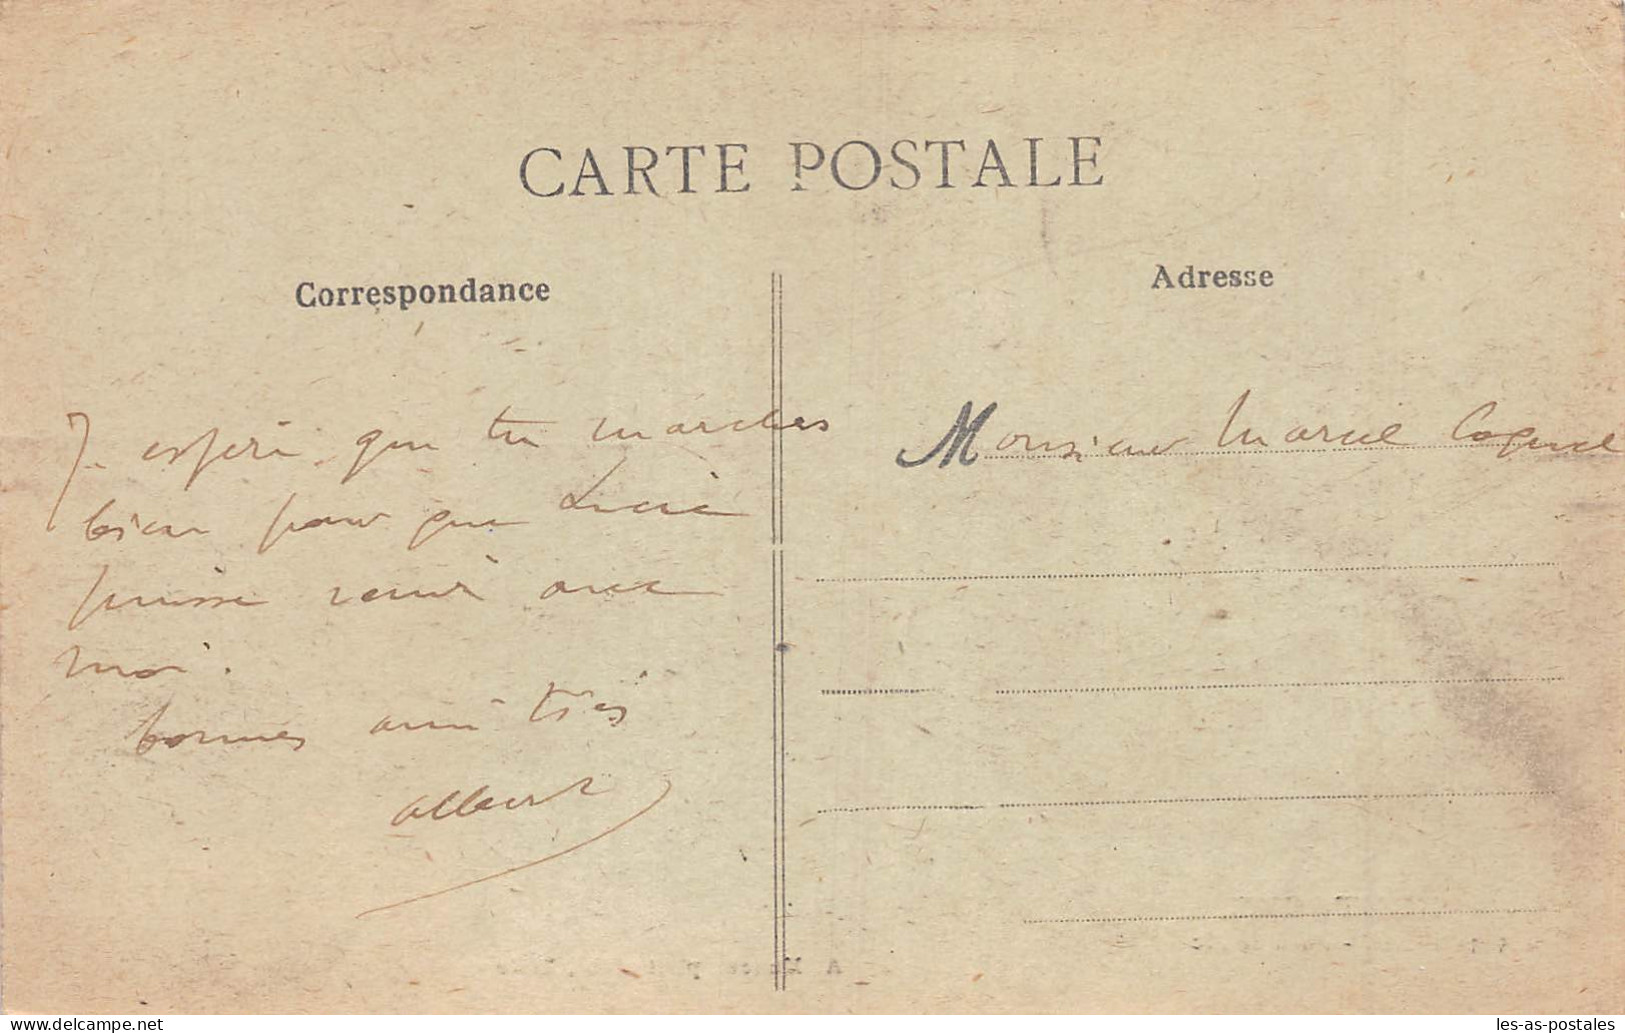 CARTE POSTALE
Correspondance
Adresse
J. espere que tu marches
bien pour que Lucie
puisse venir avec
moi.
bonnes amitiés
Albert
Monsieur Marcel
www.delcampe.net
les-as-postales